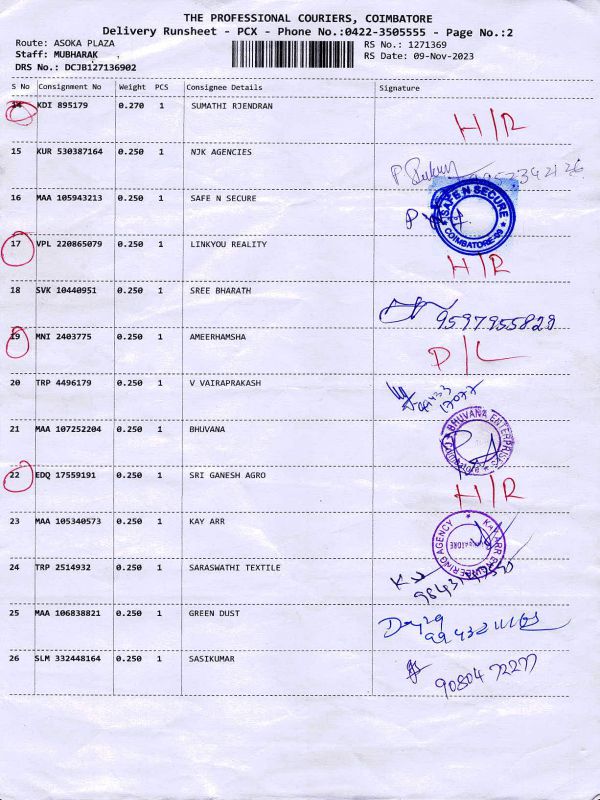 THE PROFESSIONAL COURIERS, COIMBATORE
Delivery Runsheet - PCX - Phone No.:0422-3505555 - Page No.:2
Route: ASOKA PLAZA RS No.: 1271369
Staff: MUBHARAK RS Date: 09-Nov-2023
DRS No.: DCJB127136902
S No Consignment No Weight PCS Consignee Details Signature
14 KDI 895179 0.270 1 SUMATHI RJENDRAN
H/R
15 KUR 530387164 0.250 1 NJK AGENCIES
16 MAA 105943213 0.250 1 SAFE N SECURE
SAFE N SECURE
COIMBATORE-09
17 VPL 220865079 0.250 1 LINKYOU REALITY
H/R
18 SVK 10440951 0.250 1 SREE BHARATH
9597955828
19 MNI 2403775 0.250 1 AMEERHAMSHA
D/L
20 TRP 4496179 0.250 1 V VAIRAPRAKASH
21 MAA 107252204 0.250 1 BHUVANA
BHUVANA ENTERPRISES
22 EDQ 17559191 0.250 1 SRI GANESH AGRO
H/R
23 MAA 105340573 0.250 1 KAY ARR
KAY ARR ENGINEERING AGENCY
24 TRP 2514932 0.250 1 SARASWATHI TEXTILE
25 MAA 106838821 0.250 1 GREEN DUST
26 SLM 332448164 0.250 1 SASIKUMAR
90804 72277